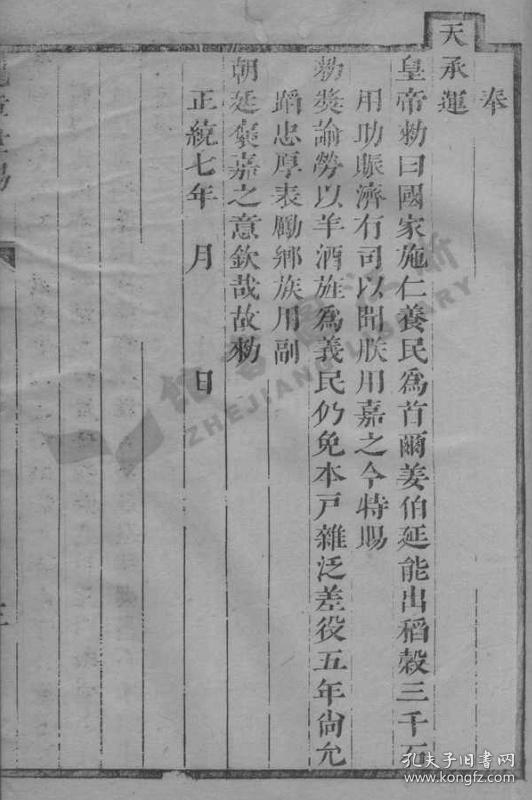 奉
天承運
皇帝勅曰國家施仁養民爲首爾姜伯延能出稻榖三千石
用助賑濟有司以聞朕用嘉之今特賜
勑奬諭勞以羊酒旌爲義民仍免本戸雜泛差役五年尙允
蹈忠厚表勵鄉族用副
朝廷褒嘉之意欽哉故勅
正統七年 月 日
ZHEJIANG LIBRARY
孔夫子旧書网
www.kongfz.com